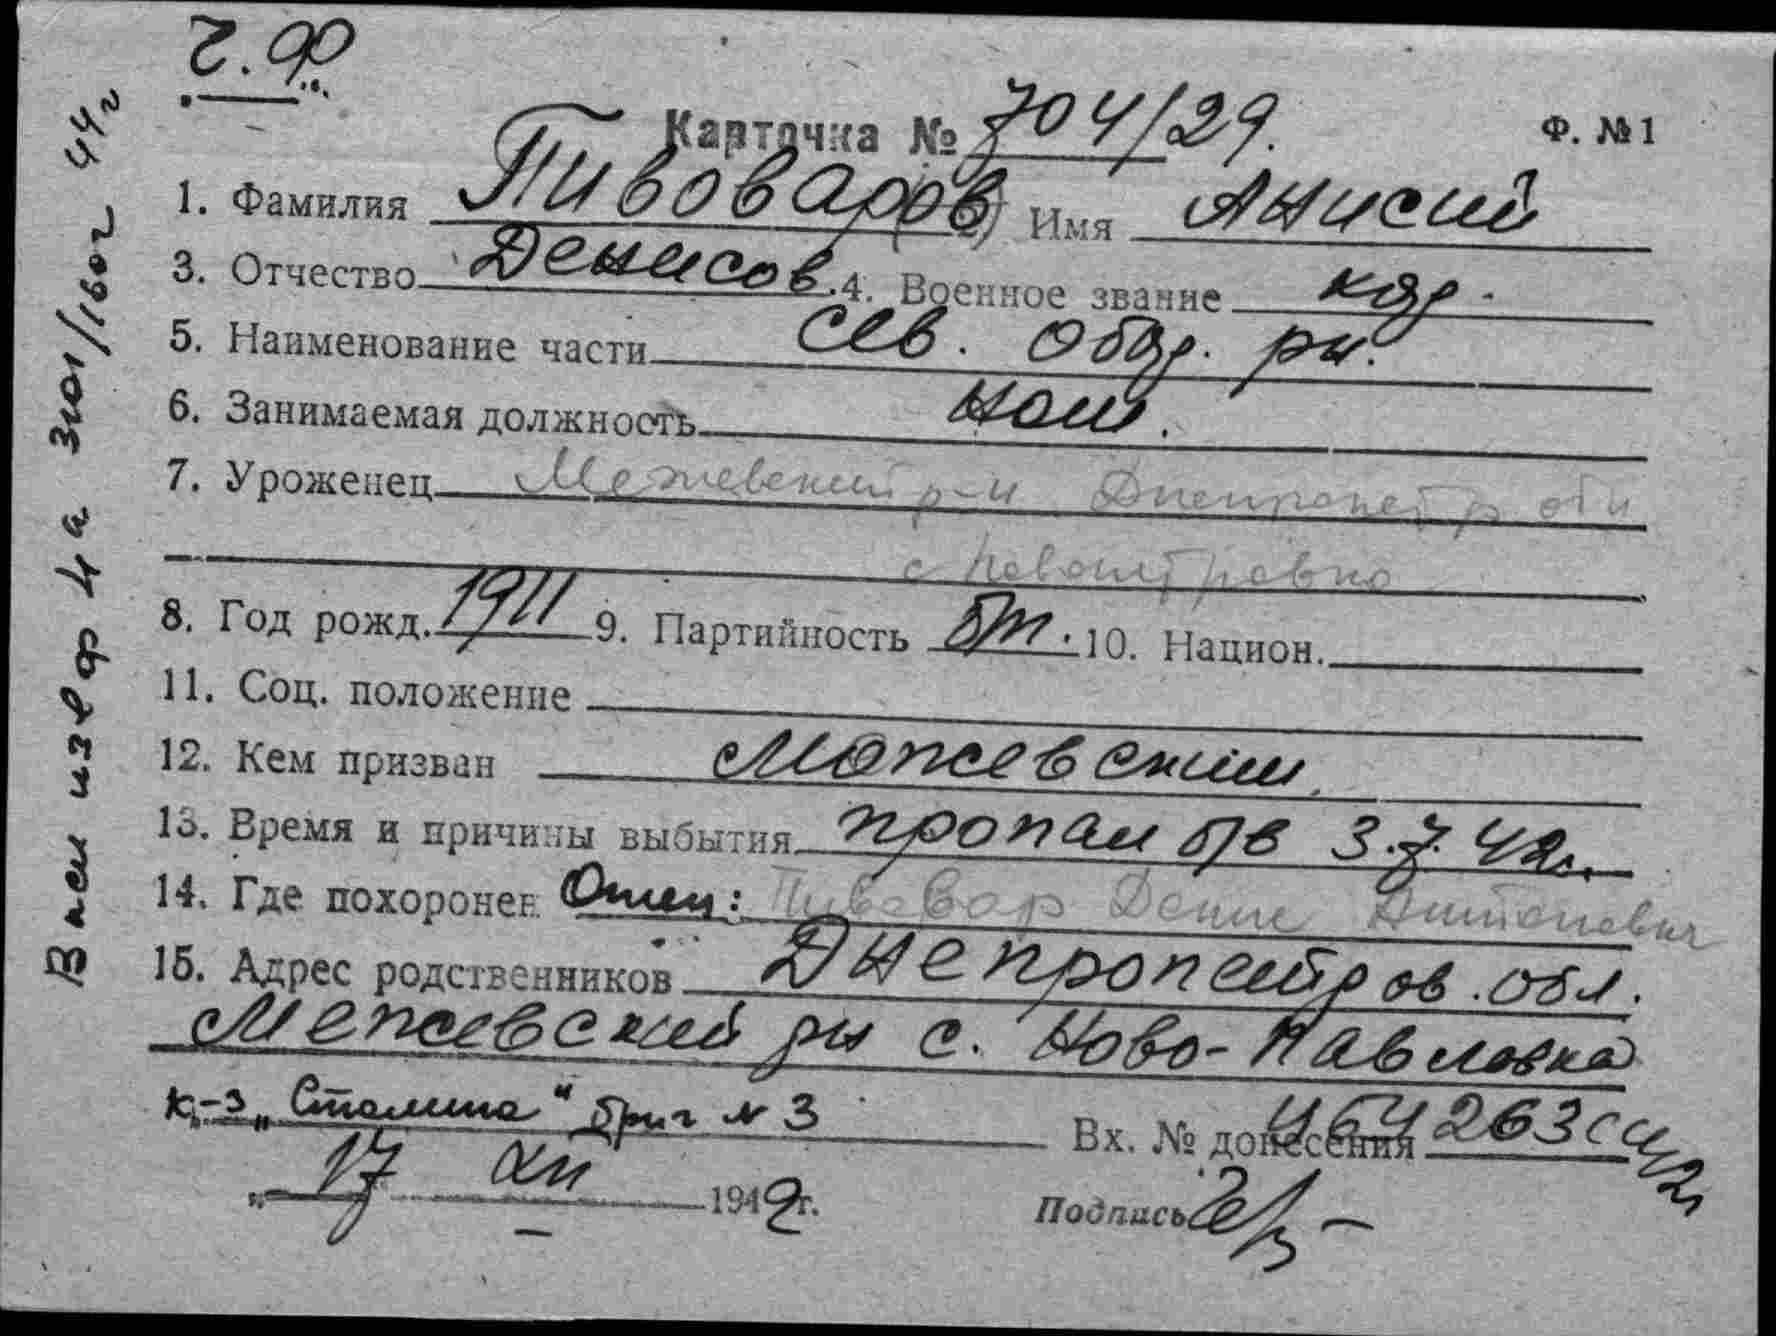 Ч.Ф
Карточка № 704/29.
Ф. №1
1. Фамилия Пивоваров Имя Анисий
3. Отчество Денисов. 4. Военное звание кр.
5. Наименование части Сев. обор. рн.
6. Занимаемая должность ном.
7. Уроженец Межевский р-н Днепропетр обл
с
8. Год рожд. 1911 9. Партийность б/п. 10. Национ.
11. Соц. положение
12. Кем призван Межевским
13. Время и причины выбытия пропал б/в 3.7.42г.
14. Где похоронен Отец: Пивовар Денис
15. Адрес родственников Днепропетров. обл.
Межевский рн с. Ново-Павловка
к-з "Сталина" бриг № 3
Вх. № донесения 263с
"17" XII 1942г.
Подпись
Высл извф 4а 3101/160г 44г